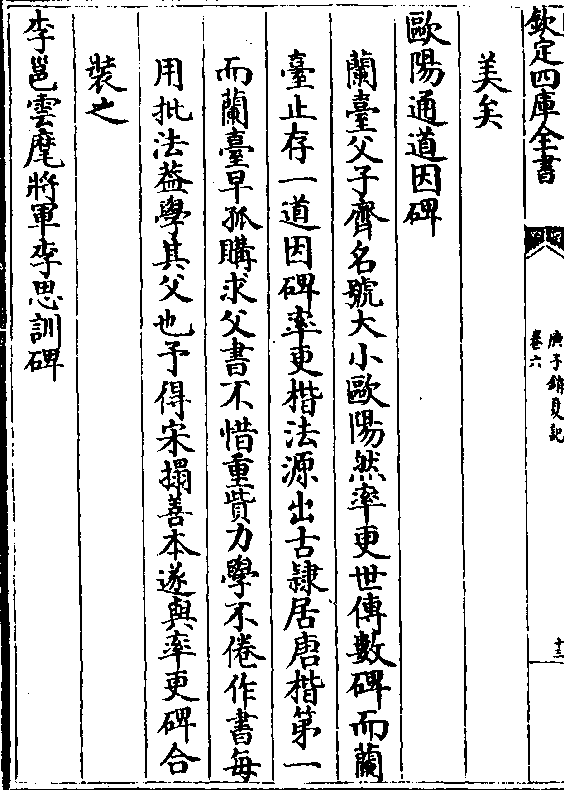 欽定四庫全書
庚子銷夏記
卷六
十三
美矣
歐陽通道因碑
蘭臺父子齊名號大小歐陽然率更世傳數碑而蘭
臺止存一道因碑率更楷法源出古隸居唐楷第一
而蘭臺早孤購求父書不惜重貲力學不倦作書每
用批法葢學其父也予得宋搨善本遂與率更碑合
裝之
李邕雲麾將軍李思訓碑